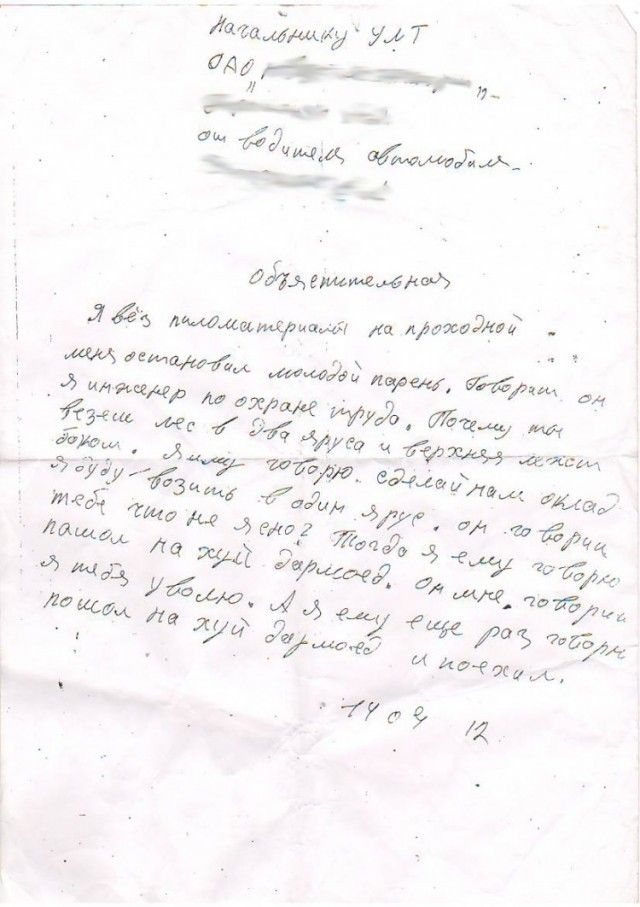 Начальнику УМТ
ОАО "
"-
от водителя автомобиля-
Объяснительная
Я вёз пиломатериалы на проходной
меня остановил молодой парень. Говорит он
я инженер по охране труда. Почему ты
везеш лес в два яруса и верхняя лежит
боком. Я иму говорю. сделай нам оклад
я буду возить в один ярус. он говорит
тебе что не ясно? Тогда я ему говорю
пашол на хуй дармоед. он мне. говорит
я тебя уволю. А я ему еще раз говорю
пошол на хуй дармоед и поехал.
14 04 12